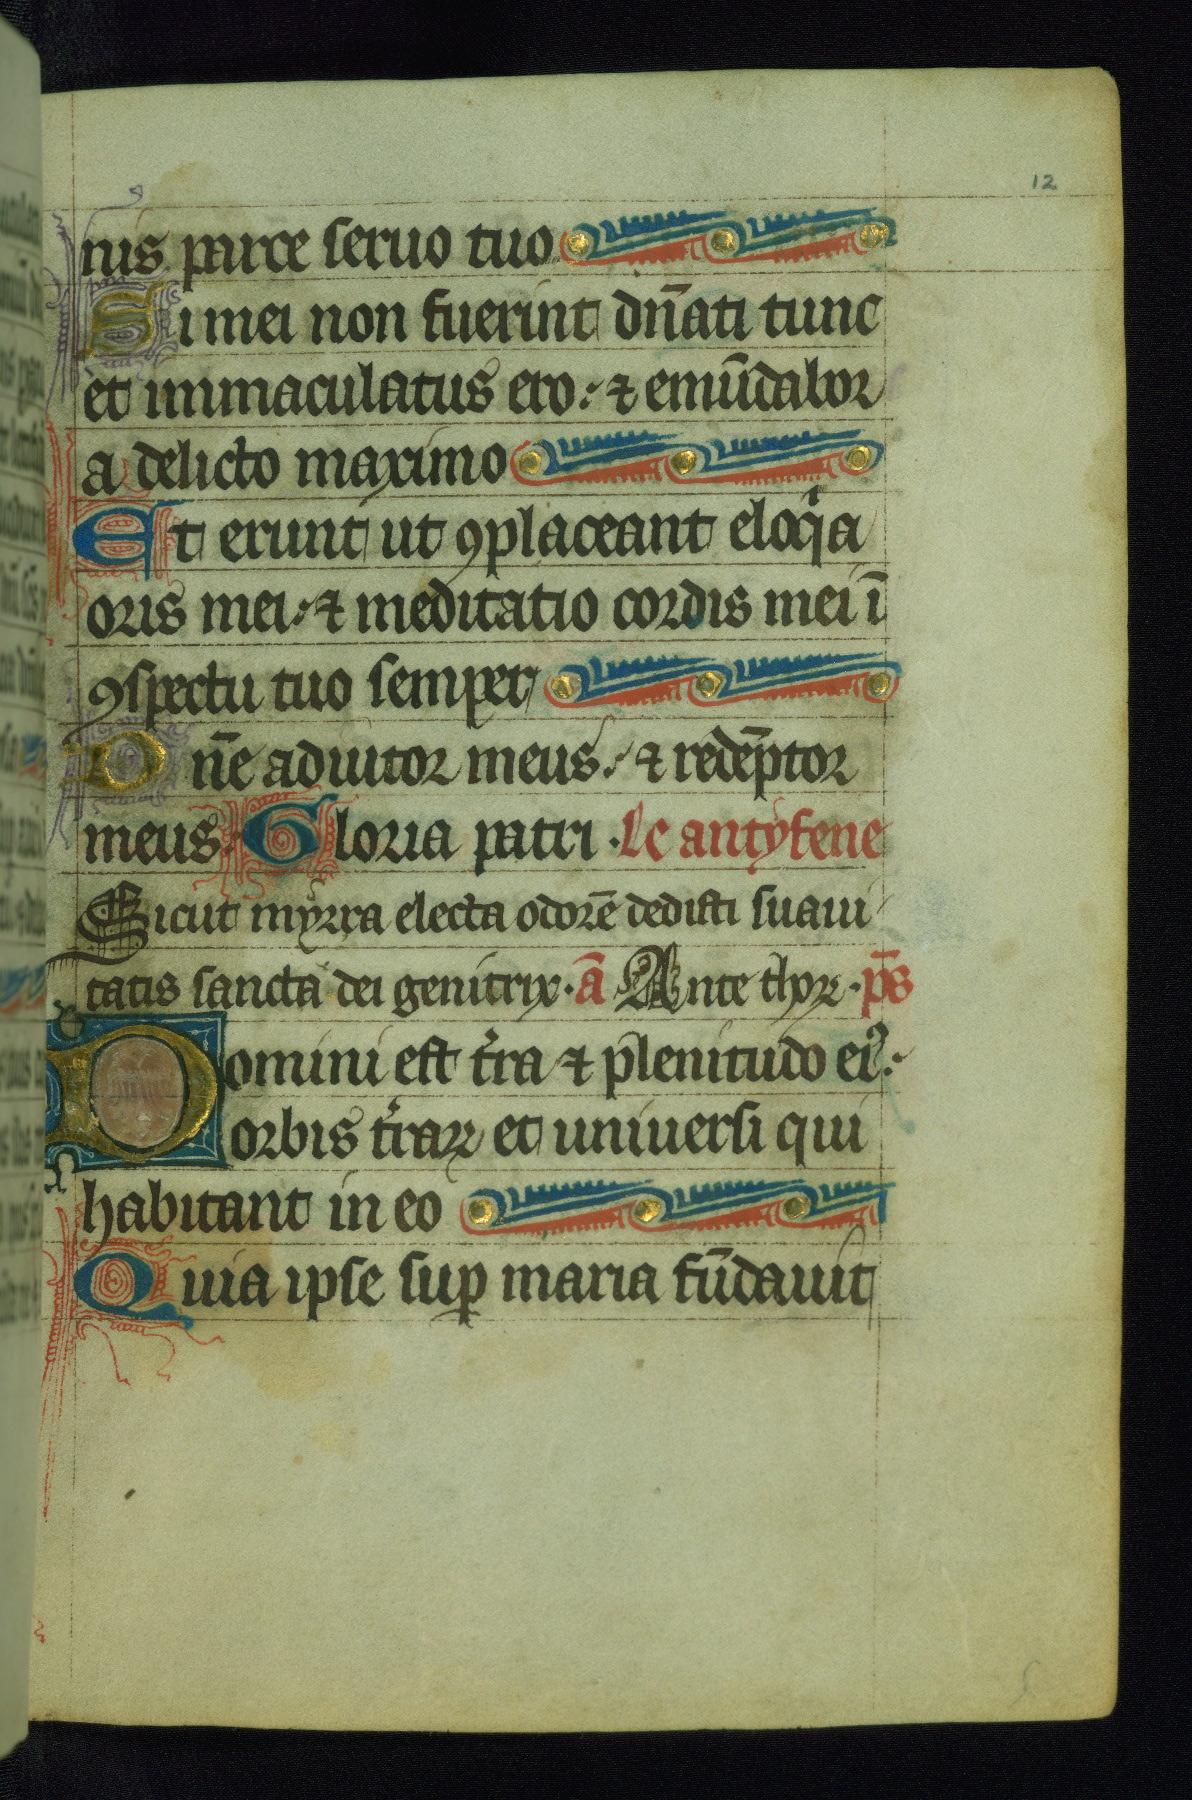 12
nis parce seruo tuo
Si mei non fuerint dn̄ati tunc
et immaculatus ero: ⁊ emūdabor
a delicto maximo
Et erunt ut ꝯplaceant eloqͥa
oris mei: ⁊ meditatio cordis mei ī
ꝯspectu tuo semper
Dn̄e adiutor meus: ⁊ redēptor
meus. Gloria patri · Le antyfene
Sicut myrra electa odorē dedisti suaui
tatis sancta dei genitrix · ā Ante thoꝝ · ps̄
Domini est tͬra ⁊ plenitudo eiꝰ:
orbis tͬraꝝ et uniuersi qui
habitant in eo
Quia ipse suꝑ maria fūdauit